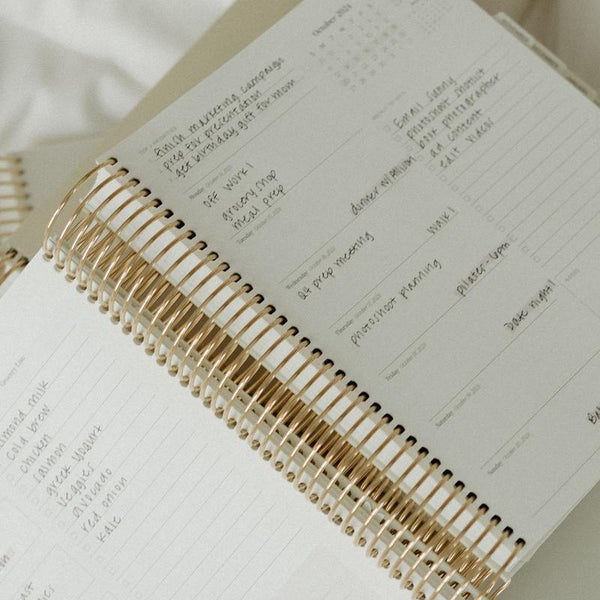 October 2024
finish marketing campaign
prep for presentation
get birthday gift for mom
Monday
OFF WORK!
grocery shop
meal prep
Tuesday
dinner w/Allison
Wednesday
Q4 prep meeting
WALK!
Thursday
photoshoot planning
Friday
pilates - 6pm
Saturday
Date night!
Sunday
photoshoot shotlist
book photographer
ad content
edit video
cold brew
chicken
salmon
greek yogurt
veggies
avocado
red onion
kale